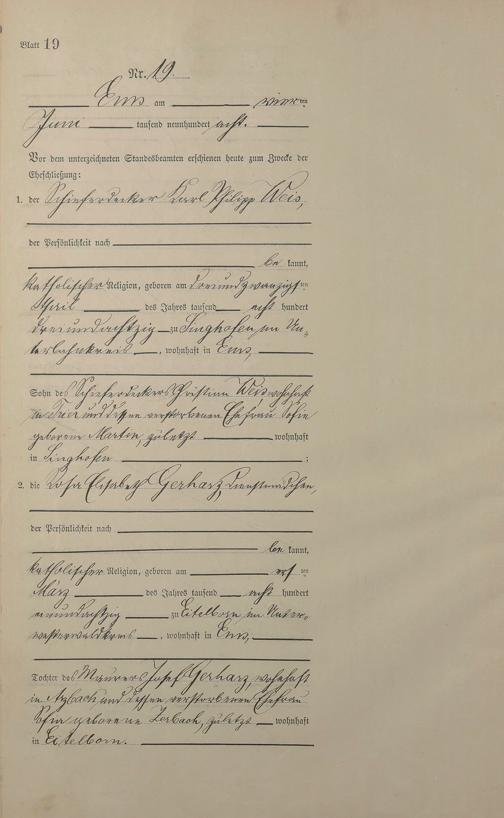 Blatt 19
Nr. 19.
Ems am vier ten
Juni tausend neunhundert acht.
Vor dem unterzeichneten Standesbeamten erschienen heute zum Zwecke der
Eheschließung:
1. der Schieferdecker Karl Philipp Weis,
der Persönlichkeit nach
be kannt,
katholischer Religion, geboren am dreiundzwanzigs ten
April des Jahres tausend acht hundert
dreiundachtzig zu Singhofen im Un-
terlahnkreis, wohnhaft in Ems,
Sohn des Schieferdeckers Christian Weis wohnhaft
in und dessen verstorbenen Ehefrau Sofie
geborene Martin, zuletzt wohnhaft
in Singhofen ;
2. die Rosa Elisabeth Gerharz, Dienstmädchen,
der Persönlichkeit nach
be kannt,
katholischer Religion, geboren am ers ten
März des Jahres tausend acht hundert
neunundachtzig zu Eitelborn im Unter-
westerwaldkreis, wohnhaft in Ems,
Tochter des Maurers Josef Gerharz, wohnhaft
in Arzbach und dessen verstorbenen Ehefrau
Sofia geborene zuletzt wohnhaft
in Eitelborn.